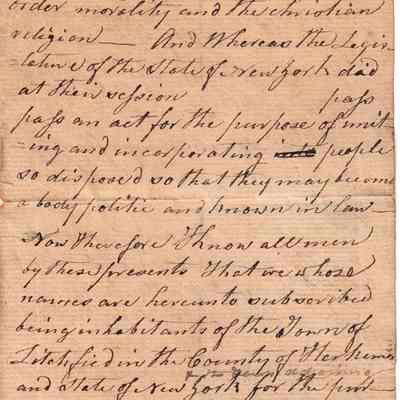 order morality and the christian
religion — And Whereas the Legis-
=lature of the State of New York did
at their session pass
pass an act for the purpose of unit-
=ing and incorporating people
so dispose'd so that they may become
a body politic and known in law —
Now Therefore Know all men
by these presents That we whose
names are hereunto subscribed
being inhabitants of the Town of
Litchfield in the County of Herkimer
adjoining
and state of New York for the pur-